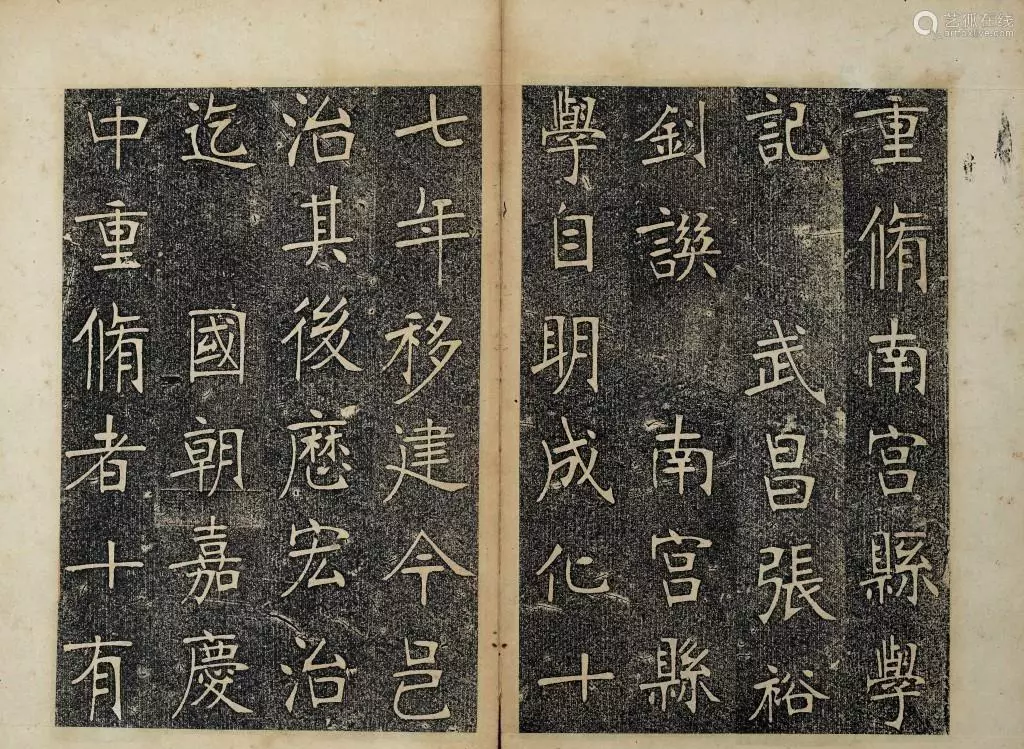 重脩南宫縣學
記 武昌張裕
釗譔 南宫縣
學自明成化十
七年移建今邑
治其後歴宏治
迄 國朝嘉慶
中重脩者十有
艺狐在线
artfoxlive.com